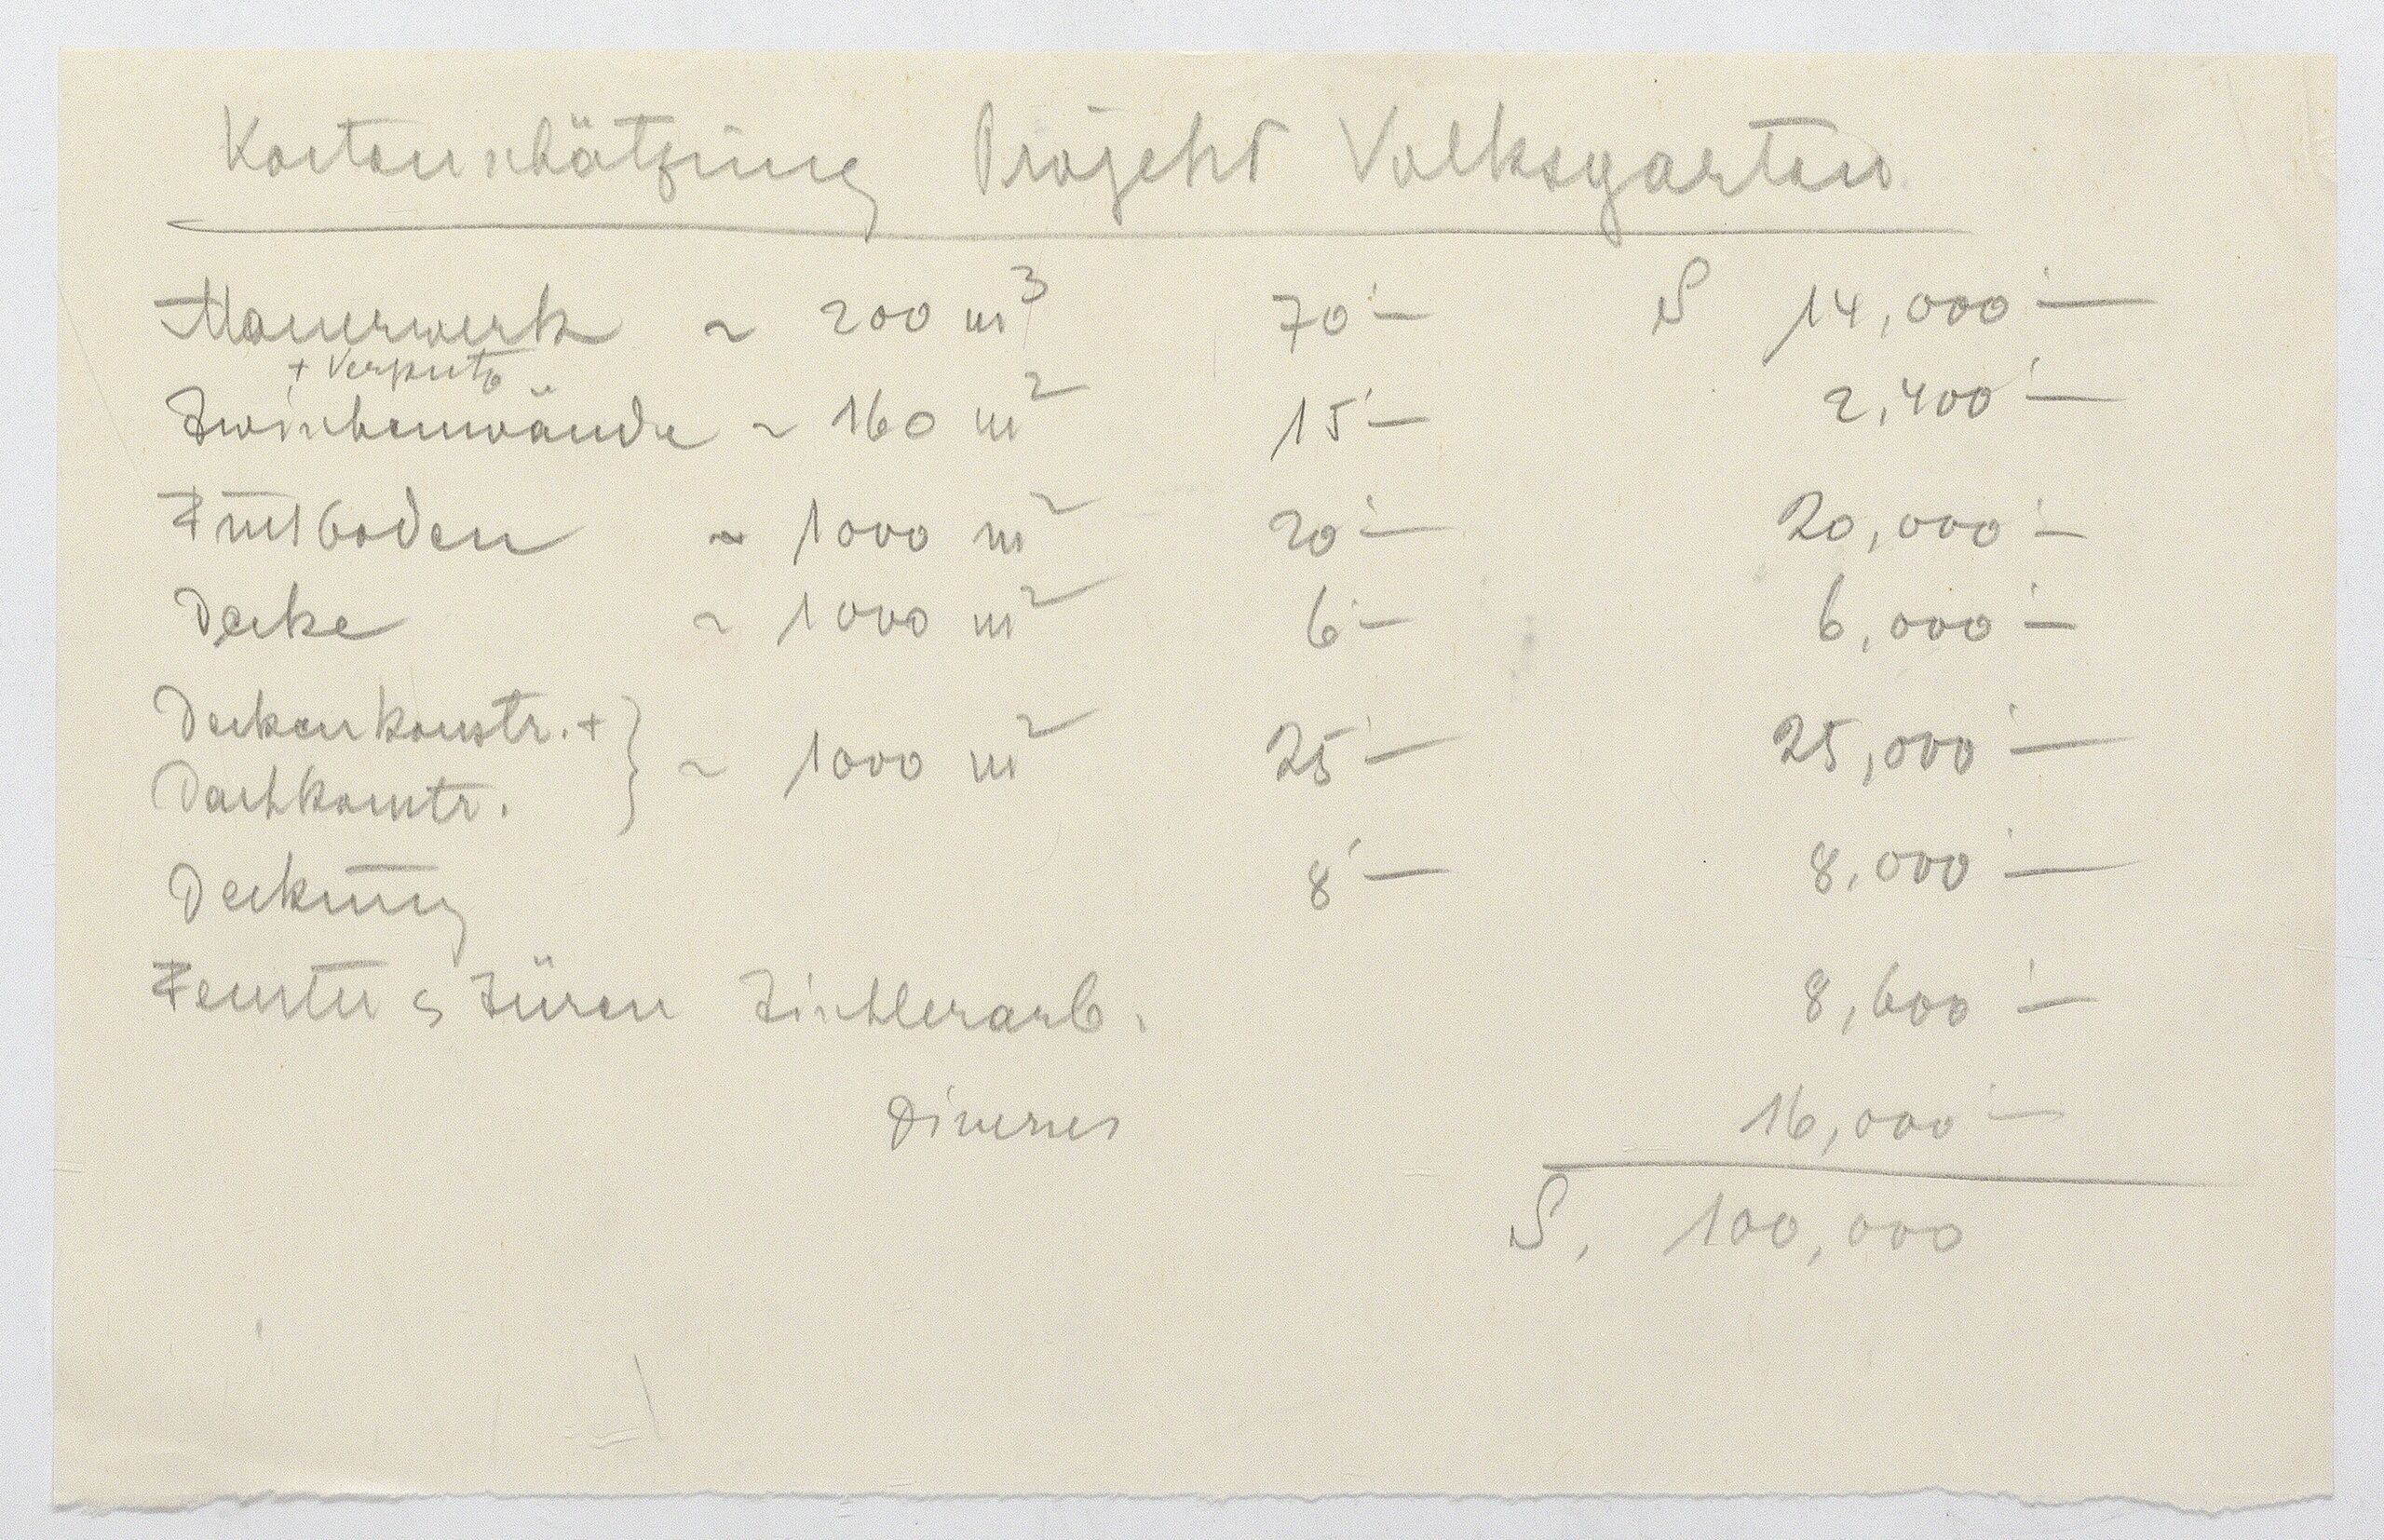 Kostenschätzung Projekt Volksgarten
Mauerwerk ~ 200 m³ 70·— S 14,000·—
+ Verputz
Zwischenwände ~ 160 m² 15·— 2,400·—
Fußboden ~ 1000 m² 20·— 20,000·—
Decke ~ 1000 m² 6·— 6,000·—
Deckenkonstr. + } ~ 1000 m² 25·— 25,000·—
Dachkonstr.
Deckung 8·— 8,000·—
Fenster & Türen Tischlerarb. 8,600·—
Diverses 16,000·—
S. 100,000